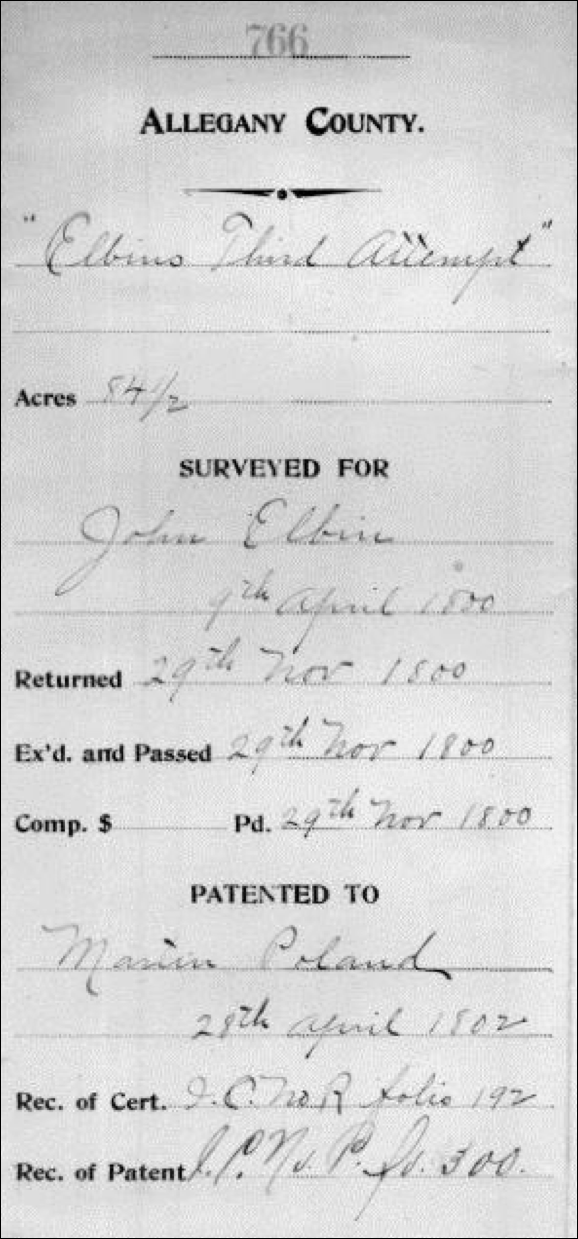 766
ALLEGANY COUNTY.
"Elbins Third Attempt"
Acres 84 1/2
SURVEYED FOR
John Elbin
9th April 1800
Returned 29th Nov 1800
Ex'd. and Passed 29th Nov 1800
Comp. $ Pd. 29th Nov 1800
PATENTED TO
Poland
28th April 1802
Rec. of Cert. I.C. No R folio 192
Rec. of Patent I.C. No. P. fo. 300.